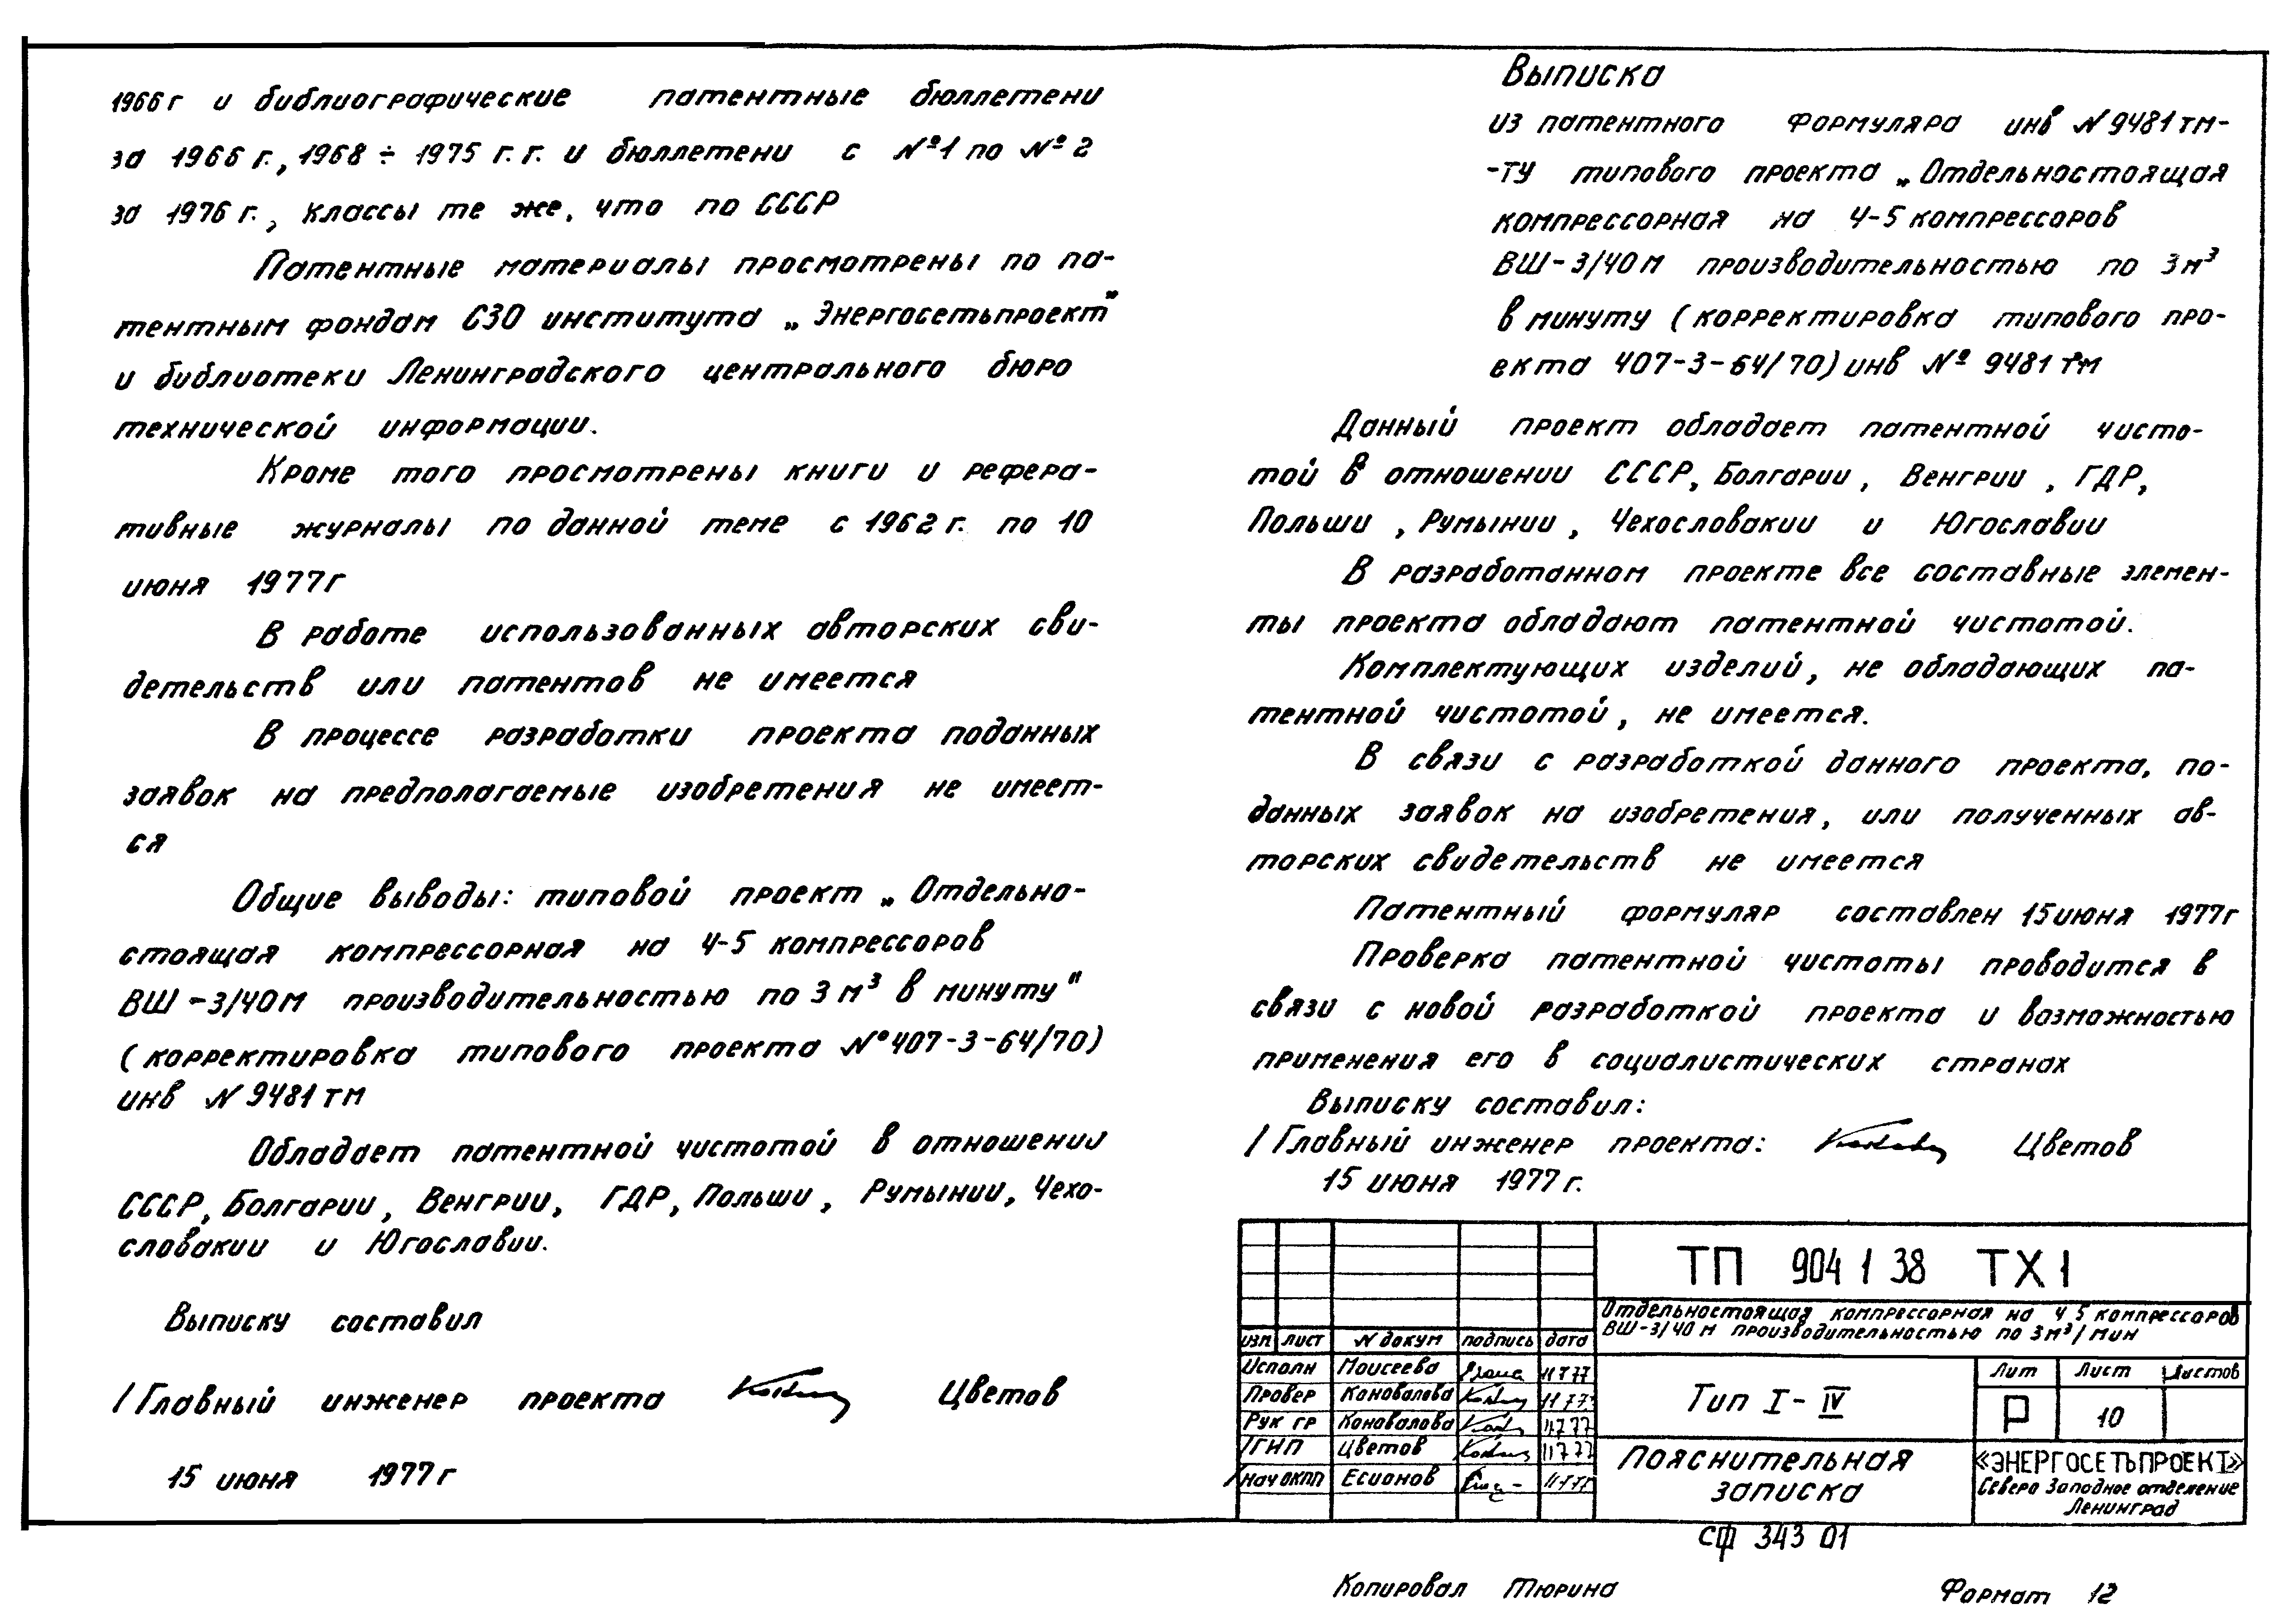 1966г и библиографические патентные бюллетени
за 1966 г., 1968 ÷ 1975 г.г. и бюллетени с №1 по №2
за 1976 г., классы те же, что по СССР
Патентные материалы просмотрены по па-
тентным фондам СЗО института „Энергосетьпроект"
и библиотеки Ленинградского центрального бюро
технической информации.
Кроме того просмотрены книги и рефера-
тивные журналы по данной теме с 1962г. по 10
июня 1977г
В работе использованных авторских сви-
детельств или патентов не имеется
В процессе разработки проекта поданных
заявок на предполагаемые изобретения не имеет-
ся
Общие выводы: типовой проект „Отдельно-
стоящая компрессорная на 4-5 компрессоров
ВШ-3/40м производительностью по 3м³ в минуту"
(корректировка типового проекта №407-3-64/70)
инв N 9481тм
Обладает патентной чистотой в отношении
СССР, Болгарии, Венгрии, ГДР, Польши, Румынии, Чехо-
словакии и Югославии.
Выписку составил
/Главный инженер проекта Цветов
15 июня 1977г
Выписка
из патентного формуляра инв N9481тм-
-ту типового проекта „Отдельностоящая
компрессорная на 4-5 компрессоров
ВШ-3/40м производительностью по 3м³
в минуту (корректировка типового про-
екта 407-3-64/70) инв № 9481тм
Данный проект обладает патентной чисто-
той в отношении СССР, Болгарии, Венгрии, ГДР,
Польши, Румынии, Чехословакии и Югославии
В разработанном проекте все составные элемен-
ты проекта обладают патентной чистотой.
Комплектующих изделий, не обладающих па-
тентной чистотой, не имеется.
В связи с разработкой данного проекта, по-
данных заявок на изобретения, или полученных ав-
торских свидетельств не имеется
Патентный формуляр составлен 15июня 1977г
Проверка патентной чистоты проводится в
связи с новой разработкой проекта и возможностью
применения его в социалистических странах
Выписку составил:
/Главный инженер проекта: Цветов
15 июня 1977г.
ТП 904 1 38 ТХ1
Отдельностоящая компрессорная на 4 5 компрессоров
ВШ-3/40м производительностью по 3м³/мин
изм лист N докум подпись дата
Исполн Моисеева 11 7 77
Провер Коновалова 11 7 77
Рук гр Коновалова 11 7 77
/ГИП Цветов 11 7 77
Нач ОКПП Есионов 11 7 77
Тип I-IV
Лит Лист Листов
Р 10
Пояснительная
записка
«ЭНЕРГОСЕТЬПРОЕКТ»
Северо Западное отделение
Ленинград
СФ 343 01
Копировал Тюрина Формат 12